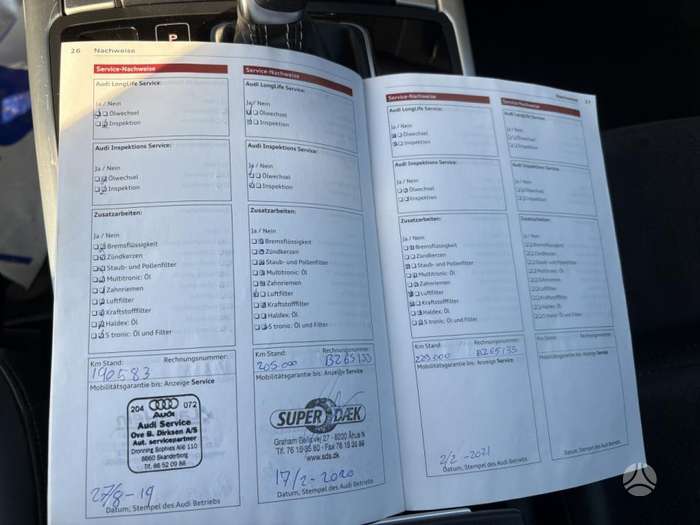 26 Nachweise
Service-Nachweise
Audi LongLife Service:
Ja / Nein
Ölwechsel
Inspektion
Audi Inspektions Service:
Ja / Nein
Ölwechsel
Inspektion
Zusatzarbeiten:
Ja / Nein
Bremsflüssigkeit
Zündkerzen
Staub- und Pollenfilter
Multitronic: Öl
Zahnriemen
Luftfilter
Kraftstofffilter
Haldex: Öl
S tronic: Öl und Filter
Km Stand: Rechnungsnummer:
190583
Mobilitätsgarantie bis: Anzeige Service
204 072
Audi
Audi Service
Ove B. Dirksen A/S
Aut. servicepartner
Dronning Sophies Allé 110
8660 Skanderborg
Tlf. 86 52 09 86
27/8-19
Datum, Stempel des Audi Betriebs
Service-Nachweise
Audi LongLife Service:
Ja / Nein
Ölwechsel
Inspektion
Audi Inspektions Service:
Ja / Nein
Ölwechsel
Inspektion
Zusatzarbeiten:
Ja / Nein
Bremsflüssigkeit
Zündkerzen
Staub- und Pollenfilter
Multitronic: Öl
Zahnriemen
Luftfilter
Kraftstofffilter
Haldex: Öl
S tronic: Öl und Filter
Km Stand: Rechnungsnummer:
205000
Mobilitätsgarantie bis: Anzeige Service
SUPER DÆK
www.sds.dk
17/2-2020
Datum, Stempel des Audi Betriebs
Service-Nachweise
Audi LongLife Service:
Ja / Nein
Ölwechsel
Inspektion
Audi Inspektions Service:
Ja / Nein
Ölwechsel
Inspektion
Zusatzarbeiten:
Ja / Nein
Bremsflüssigkeit
Zündkerzen
Staub- und Pollenfilter
Multitronic: Öl
Zahnriemen
Luftfilter
Kraftstofffilter
Haldex: Öl
S tronic: Öl und Filter
Km Stand: Rechnungsnummer:
Mobilitätsgarantie bis: Anzeige Service
2/2-2021
Datum, Stempel des Audi Betriebs
Nachweise 27
Service-Nachweise
Audi LongLife Service:
Ja / Nein
Ölwechsel
Inspektion
Audi Inspektions Service:
Ja / Nein
Ölwechsel
Inspektion
Zusatzarbeiten:
Ja / Nein
Bremsflüssigkeit
Zündkerzen
Staub- und Pollenfilter
Multitronic: Öl
Zahnriemen
Luftfilter
Kraftstofffilter
Haldex: Öl
S tronic: Öl und Filter
Km Stand: Rechnungsnummer:
Mobilitätsgarantie bis: Anzeige Service
Datum, Stempel des Audi Betriebs
P